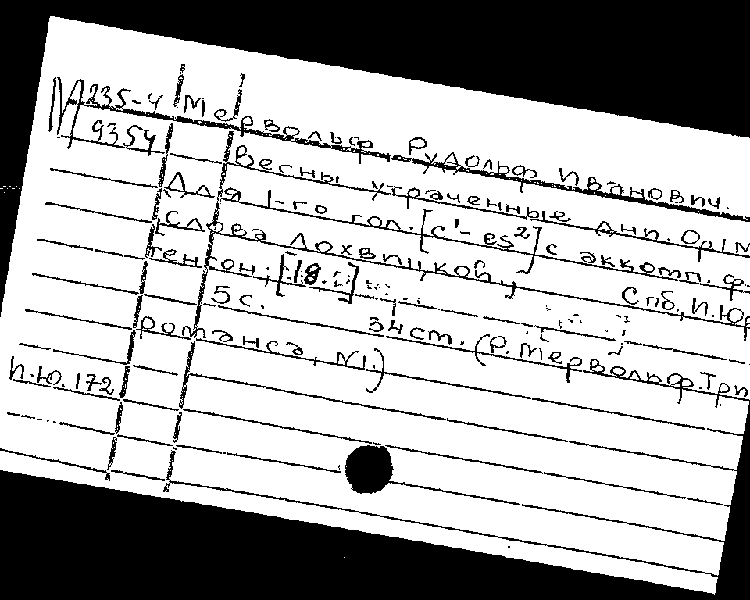 М 235-4 Мервольф, Рудольф Иванович.
9354 Весны утраченные дни. Op.1 N
Для 1-го гол. [c¹- es²] с аккомп. ф.
Слова Лохвицков,
Спб, И. Юр
тенсон, [18..]
5 с. 34 см. (Р. Мервольф. Три
романса, N1.)
И.Ю. 172